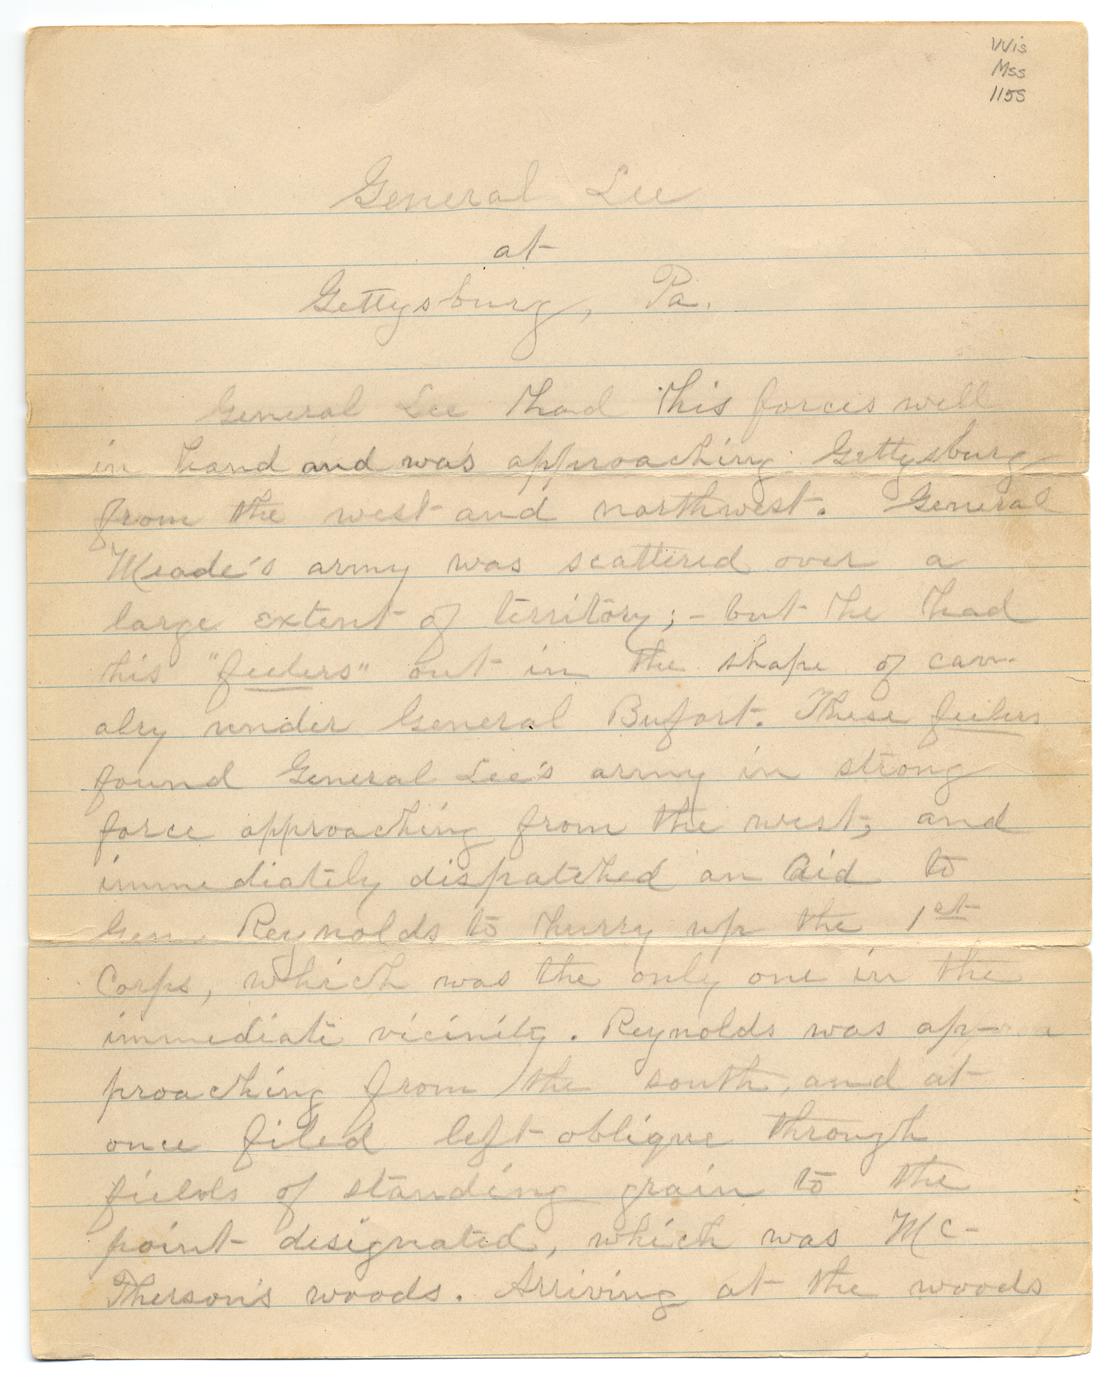 Wis
Mss
115S
General Lee
at
Gettysburg, Pa.
General Lee had his forces well
in hand and was approaching Gettysburg
from the west and northwest. General
Meade's army was scattered over a
large extent of territory; - but he had
his "feelers" out in the shape of cav-
alry under General Bufort. These feelers
found General Lee's army in strong
force approaching from the west, and
immediately dispatched an Aid to
Gen. Reynolds to hurry up the 1st
Corps, which was the only one in the
immediate vicinity. Reynolds was ap-
proaching from the south, and at
once filed left oblique through
fields of standing grain to the
point designated, which was Mc-
Pherson's woods. Arriving at the woods